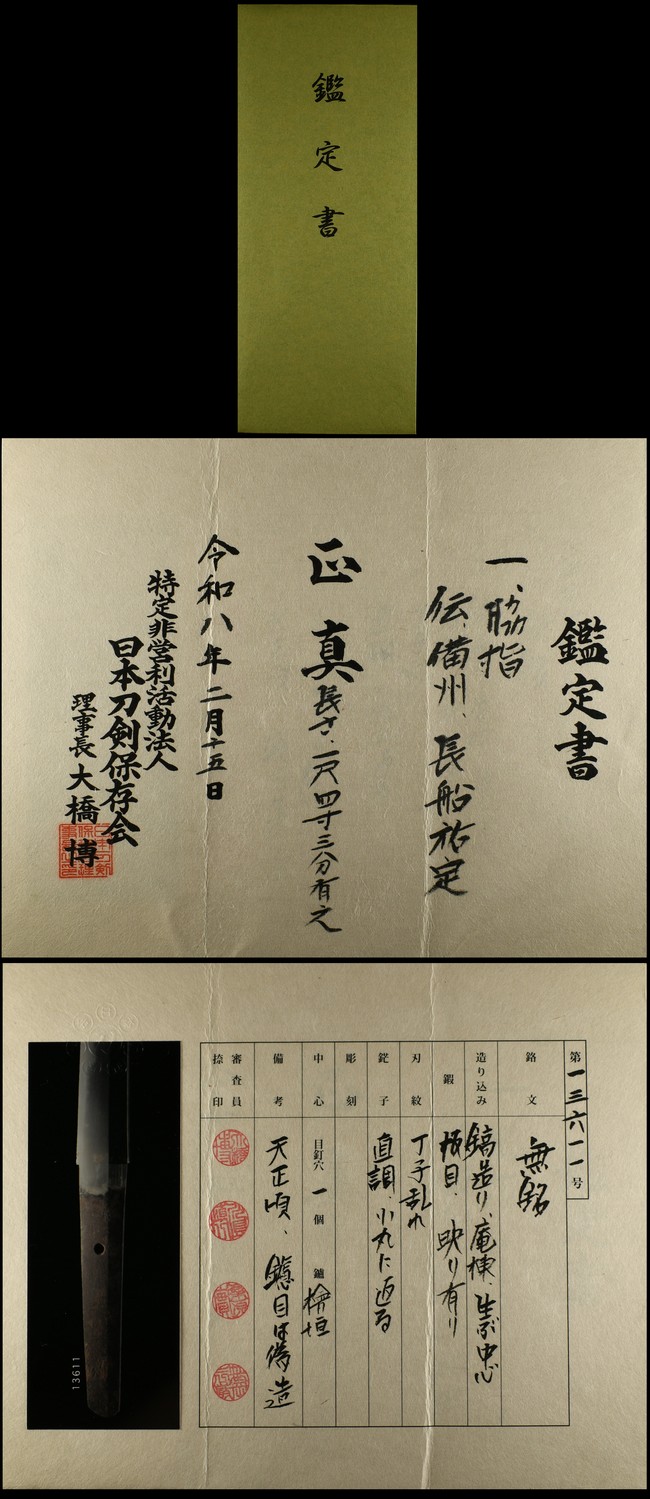 鑑定書
鑑定書
一、脇指
伝、備州、長船祐定
正真
長さ、一尺四寸三分有之
令和八年二月十五日
特定非営利活動法人
日本刀剣保存会
理事長 大橋 博
第一三六一一号
銘文 無銘
造り込み 鎬造り、庵棟、生ぶ中心
鍛 板目、映り有り
刃紋 丁子乱れ
鋩子 直調、小丸に返る
彫刻
中心 目釘穴 一 個 鑢 檜垣
備考 天正頃、鑢目は偽造
審査員
捺印
13611